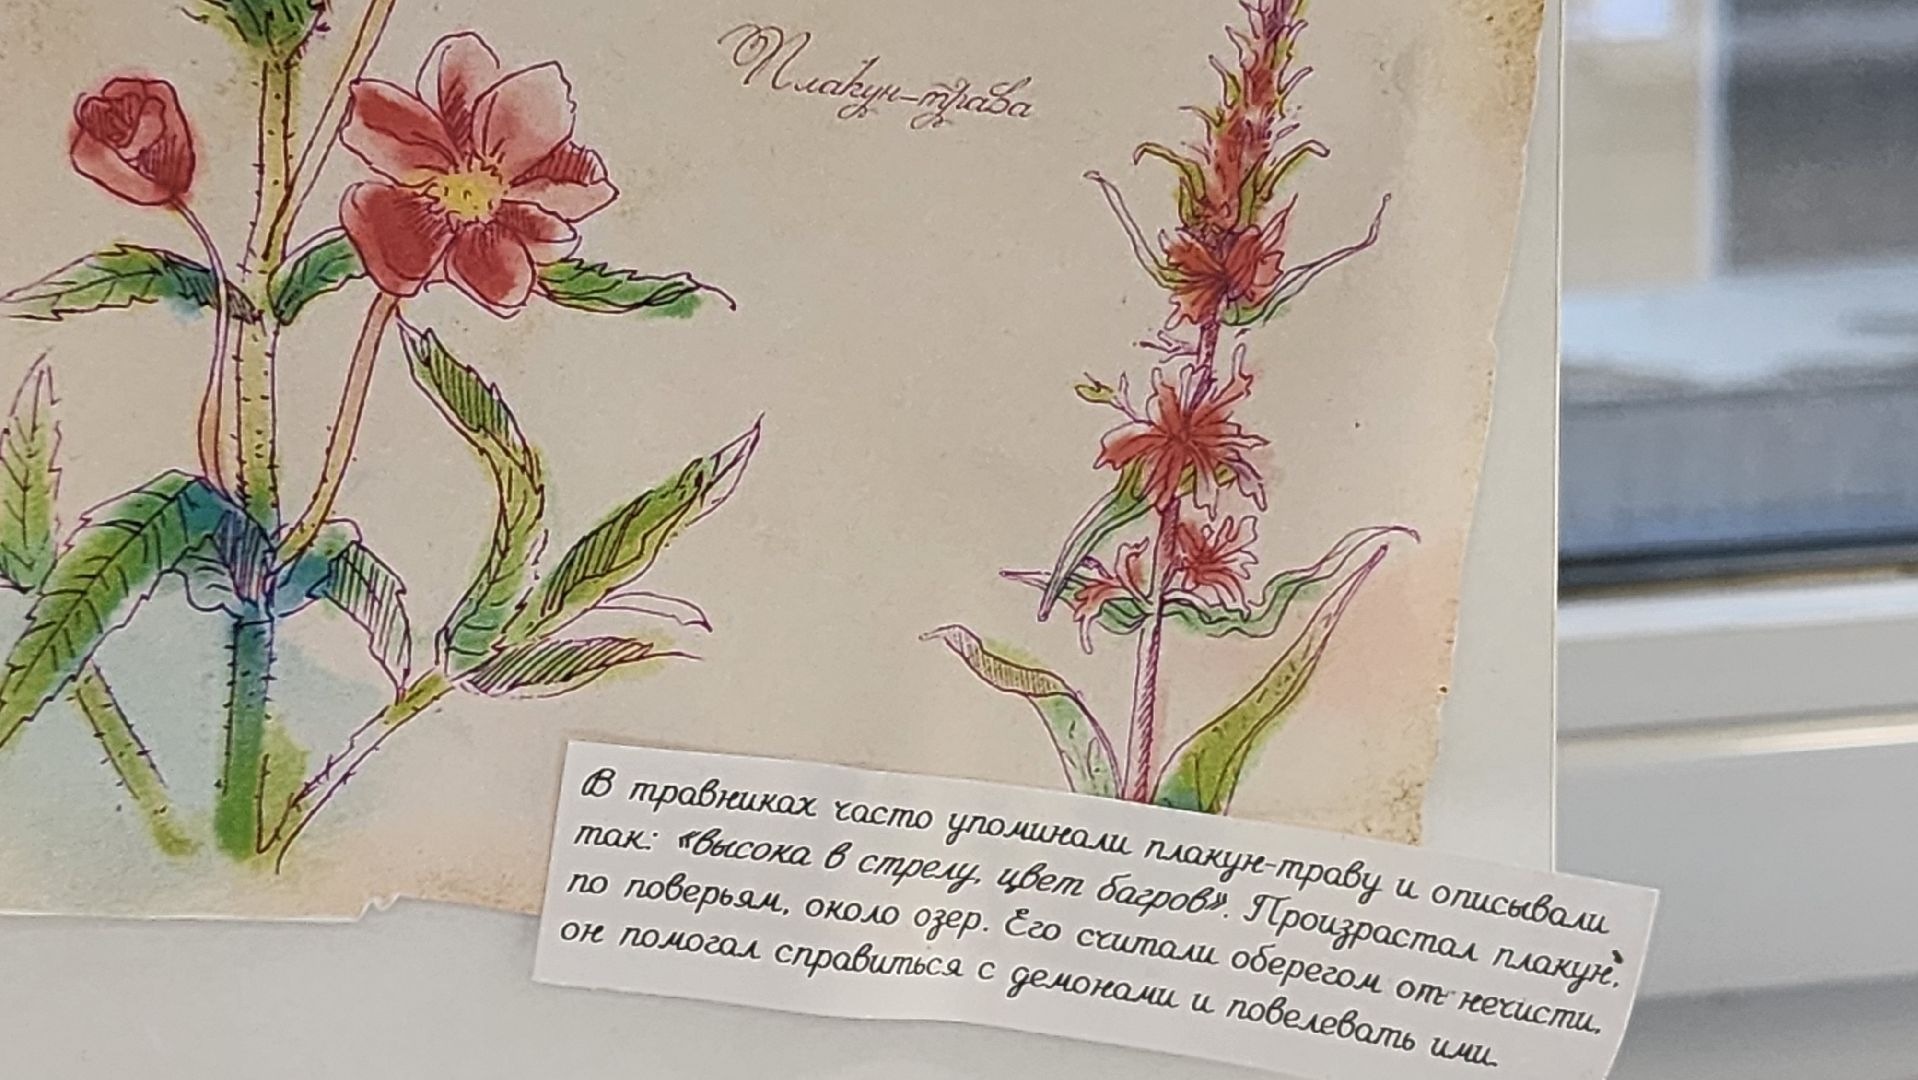 Плакун-трава
В травниках часто упоминали плакун-траву и описывали
так: «высока в стрелу, цвет багров». Произрастал плакун,
по поверьям, около озер. Его считали оберегом от нечисти,
он помогал справиться с демонами и повелевать ими.